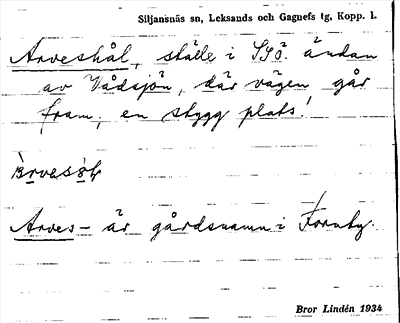 Siljansnäs sn, Leksands och Gagnefs tg, Kopp. l.
Arveshål, ställe i SSÖ. ändan
av Vådsjön, där vägen går
fram; en stygg plats!
Arves- är gårdsnamn i Fornby.
Bror Lindén 1934